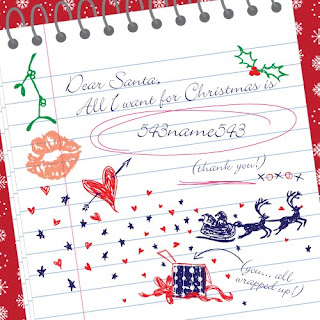 Dear Santa,
All I want for Christmas is
543name543
(thank you!)
xoxox
(you... all
wrapped up!)